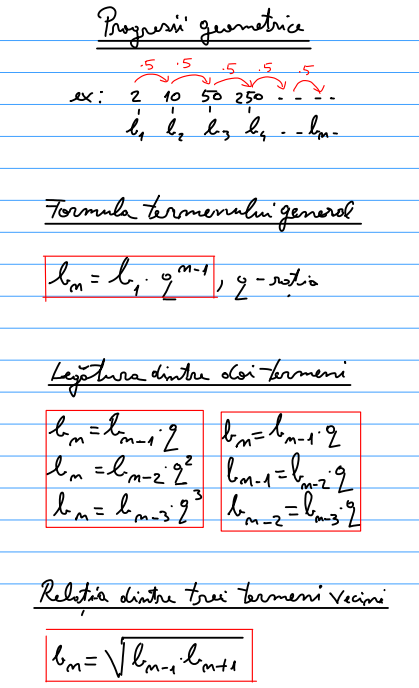 Progresii geometrice
·5 ·5 ·5 ·5 ·5
ex: 2 10 50 250 - - - -
b₁ b₂ b₃ b₄ - - bₙ -
Formula termenului general
bₙ = b₁ · qⁿ⁻¹, q - rația
Legătura dintre doi termeni
bₙ = bₙ₋₁ · q bₙ = bₙ₋₁ · q
bₙ = bₙ₋₂ · q² bₙ₋₁ = bₙ₋₂ · q
bₙ = bₙ₋₃ · q³ bₙ₋₂ = bₙ₋₃ · q
Relația dintre trei termeni vecini
bₙ = √(bₙ₋₁ · bₙ₊₁)